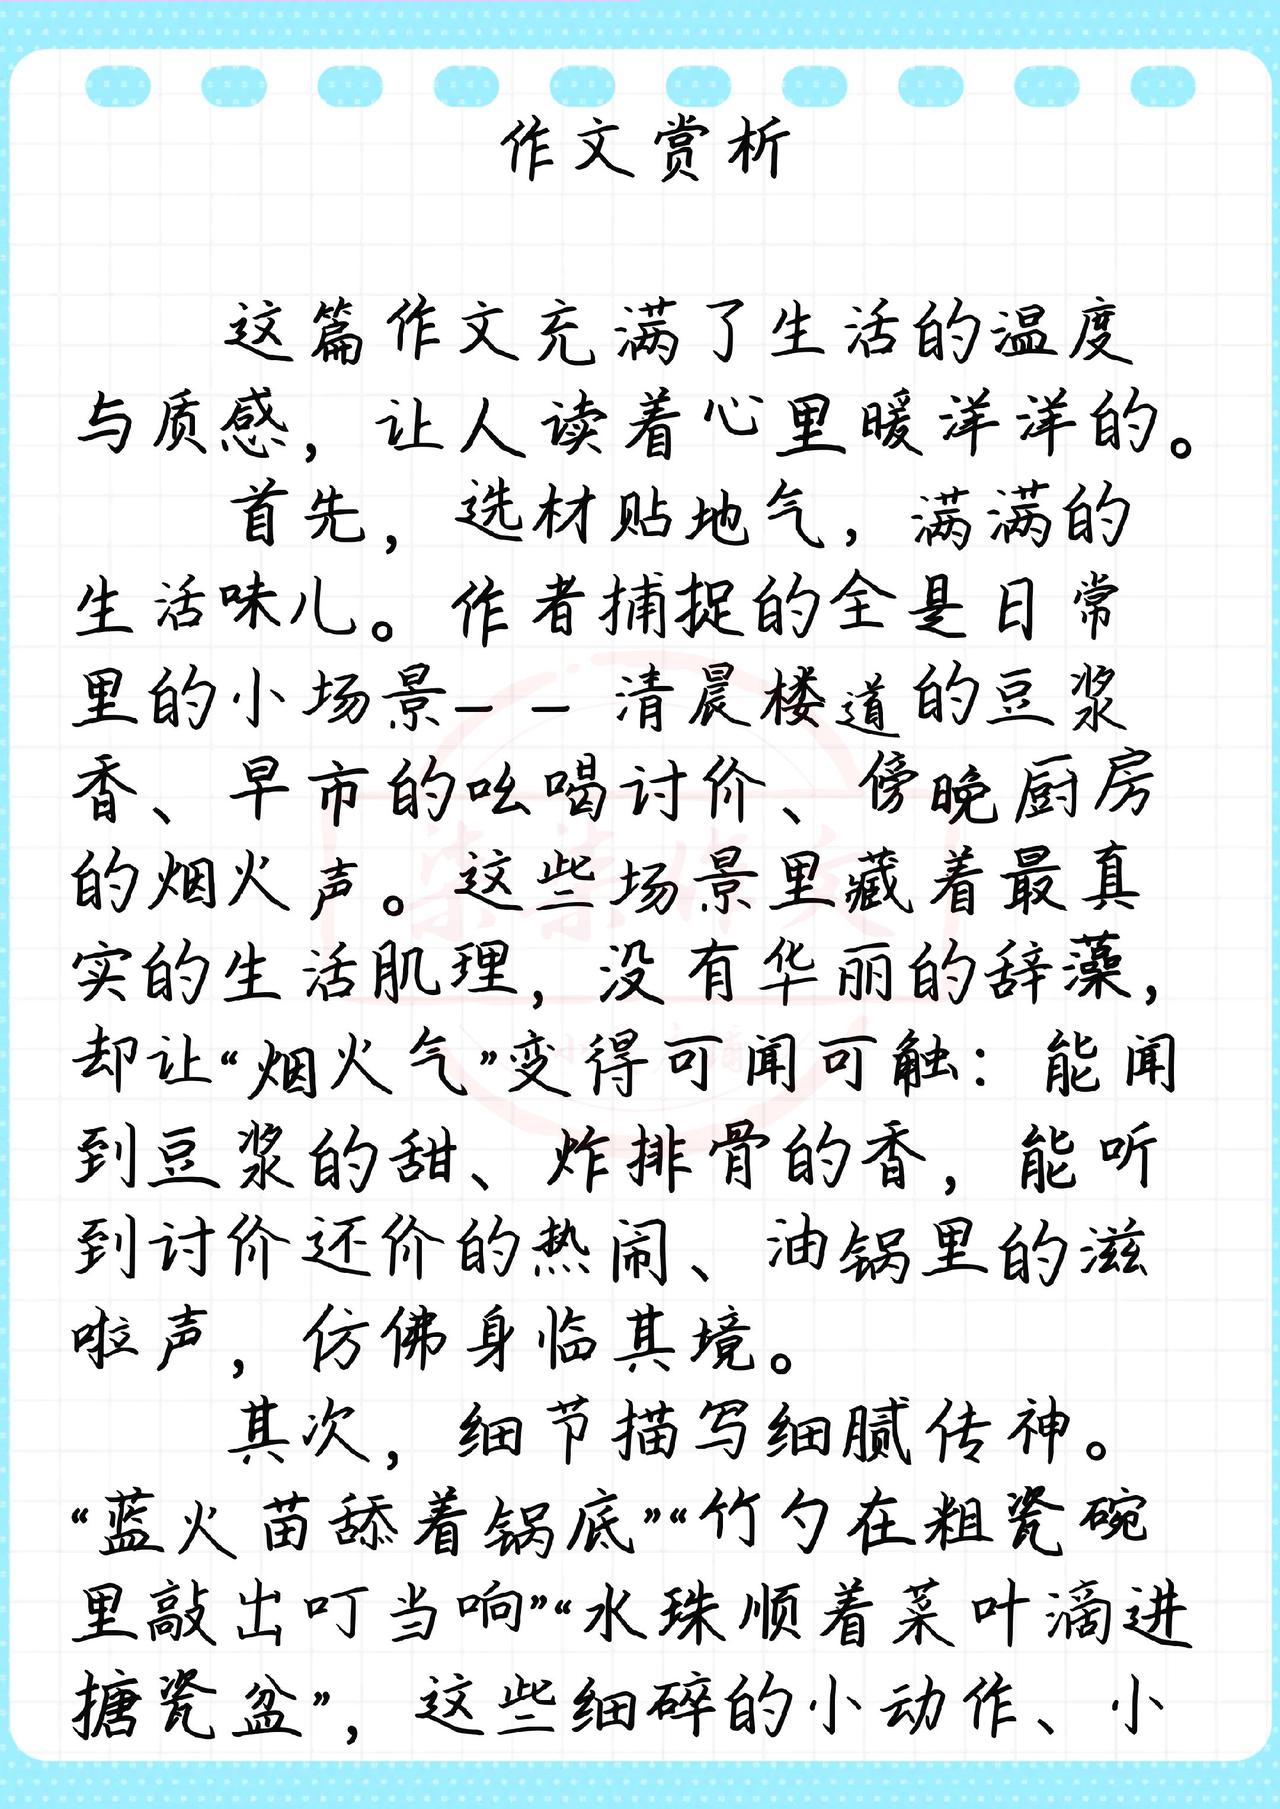 作文赏析
这篇作文充满了生活的温度
与质感，让人读着心里暖洋洋的。
首先，选材贴地气，满满的
生活味儿。作者捕捉的全是日常
里的小场景——清晨楼道的豆浆
香、早市的吆喝讨价、傍晚厨房
的烟火声。这些场景里藏着最真
实的生活肌理，没有华丽的辞藻，
却让“烟火气”变得可闻可触：能闻
到豆浆的甜、炸排骨的香，能听
到讨价还价的热闹、油锅里的滋
啦声，仿佛身临其境。
其次，细节描写细腻传神。
“蓝火苗舔着锅底”“竹勺在粗瓷碗
里敲出叮当响”“水珠顺着菜叶滴进
搪瓷盆”，这些细碎的小动作、小